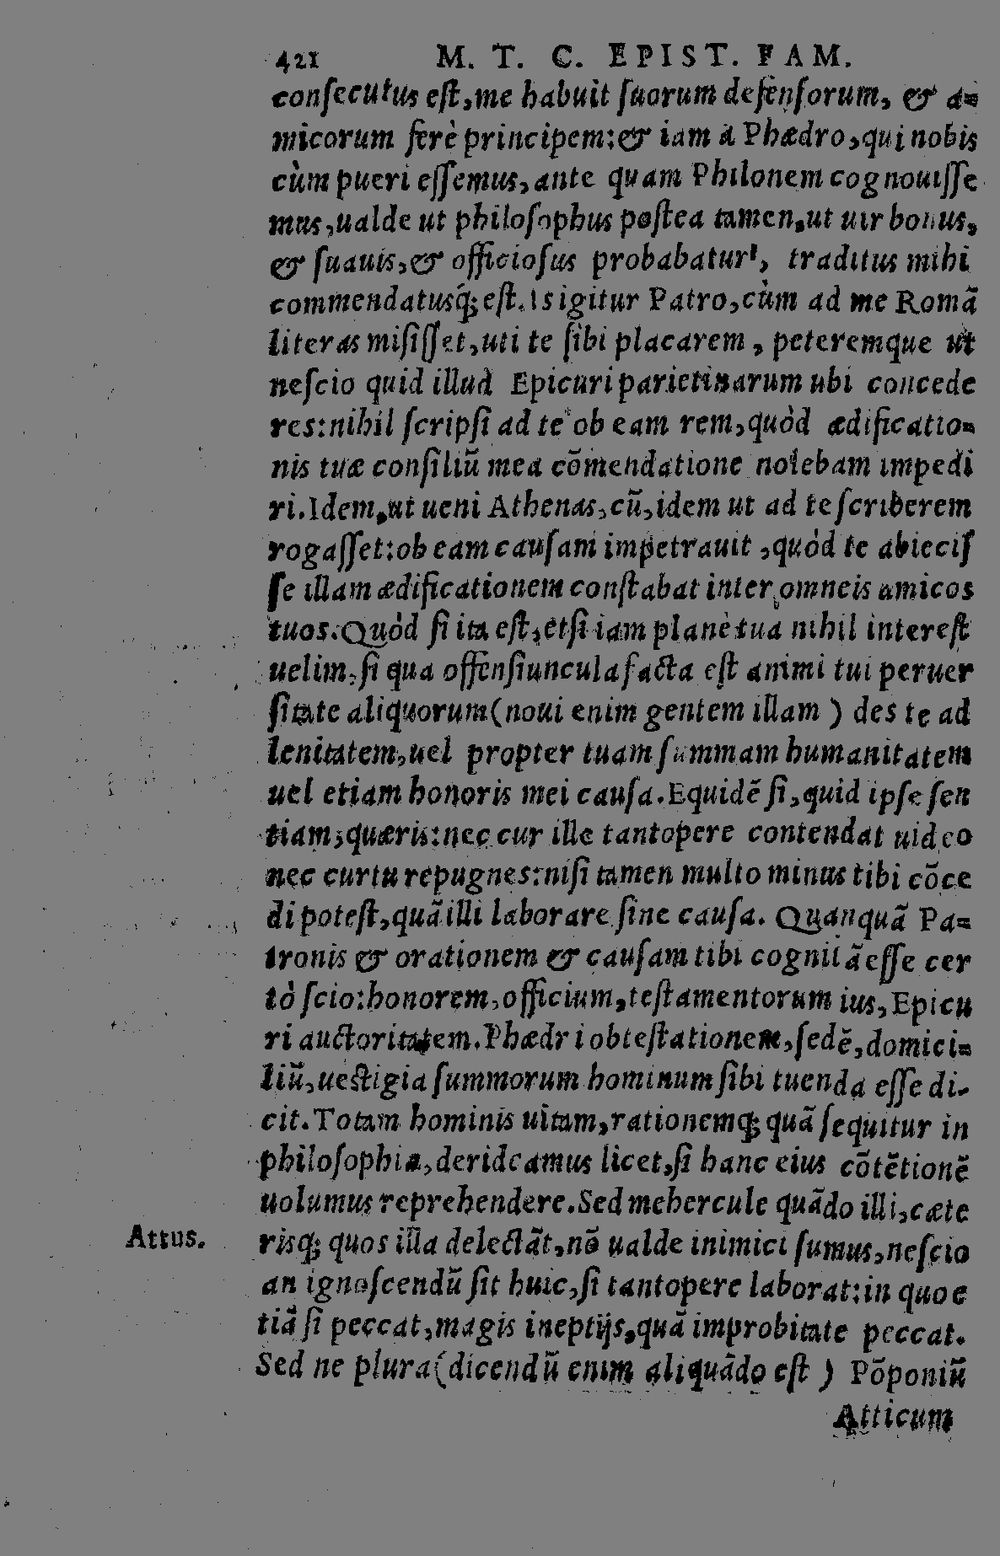 421 M. T. C. EPIST. FAM.
conſecutus eſt,me habuit ſuorum defenſorum, & a=
micorum ferè principem:& iam à Phædro,qui nobis
cùm pueri eſſemus,ante quam Philonem cognouiſſe
mus,ualde ut philoſophus poſtea tamen,ut uir bonus,
& ſuauis,& officioſus probabatur, traditus mihi
commendatusq́; eſt.Is igitur Patro,cùm ad me Romã
literas miſiſſet,uti te ſibi placarem, peteremque ut
neſcio quid illud Epicuri parietinarum ubi concede
res:nihil ſcripſi ad te ob eam rem,quòd ædificatio=
nis tuæ conſiliũ mea cõmendatione nolebam impedi
ri.Idem,ut ueni Athenas,cũ,idem ut ad te ſcriberem
rogaſſet:ob eam cauſam impetrauit ,quòd te abieciſ
ſe illam ædificationem conſtabat inter omneis amicos
tuos.Quòd ſi ita eſt,etſi iam planè tua nihil intereſt
uelim,ſi qua offenſiuncula facta eſt animi tui peruer
ſitate aliquorum(noui enim gentem illam ) des te ad
lenitatem,uel propter tuam ſummam humanitatem
uel etiam honoris mei cauſa.Equidẽ ſi,quid ipſe ſen
tiam,quæris:nec cur ille tantopere contendat uideo
nec cur tu repugnes:niſi tamen multo minus tibi cõce
di poteſt,quã illi laborare ſine cauſa. Quanquã Pa=
tronis & orationem & cauſam tibi cognitã eſſe cer
tò ſcio:honorem,officium,teſtamentorum ius,Epicu
ri auctoritatem.Phædri obteſtationem,ſedẽ,domici=
liũ,ueſtigia ſummorum hominum ſibi tuenda eſſe di-
cit.Totam hominis uitam,rationemq́; quã ſequitur in
philoſophia,derideamus licet,ſi hanc eius cõtẽtionẽ
uolumus reprehendere.Sed mehercule quãdo illi,cæte
Attus.
risq́; quos illa delectãt,nõ ualde inimici ſumus,neſcio
an ignoſcendũ ſit huic,ſi tantopere laborat:in quo e
tiã ſi peccat,magis ineptijs,quã improbitate peccat.
Sed ne plura(dicendũ enim aliquãdo eſt ) Põponiũ
Atticum